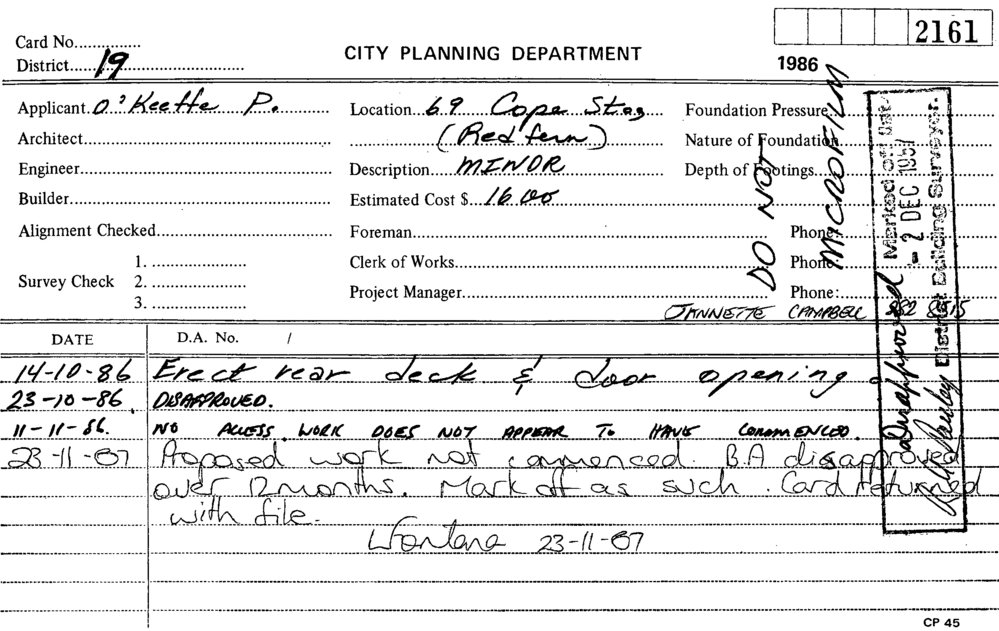 2161
Card No.
CITY PLANNING DEPARTMENT
District 19
1986
Applicant O'Keeffe P.
Location 69 Cope St
Foundation Pressure
Architect
(Redfern)
Nature of Foundation
Engineer
Description MINOR
Depth of Footings
Builder
Estimated Cost $ 1600
Alignment Checked
Foreman
Phone:
Survey Check
1.
2.
3.
Clerk of Works
Phone:
Project Manager
Phone:
JANNETTE CAMPBELL 882 8515
DO NOT
MICROFILM
Disapproved Marked off line
- 2 DEC 1987
District Building Surveyor.
DATE D.A. No. /
14-10-86 Erect rear deck & door opening.
23-10-86. DISAPPROVED.
11-11-86. NO ACCESS. WORK DOES NOT APPEAR TO HAVE COMMENCED.
23-11-87 Proposed work not commenced. B.A disapproved
over 12 months. Mark off as such. Card returned
with file.
23-11-87
CP 45